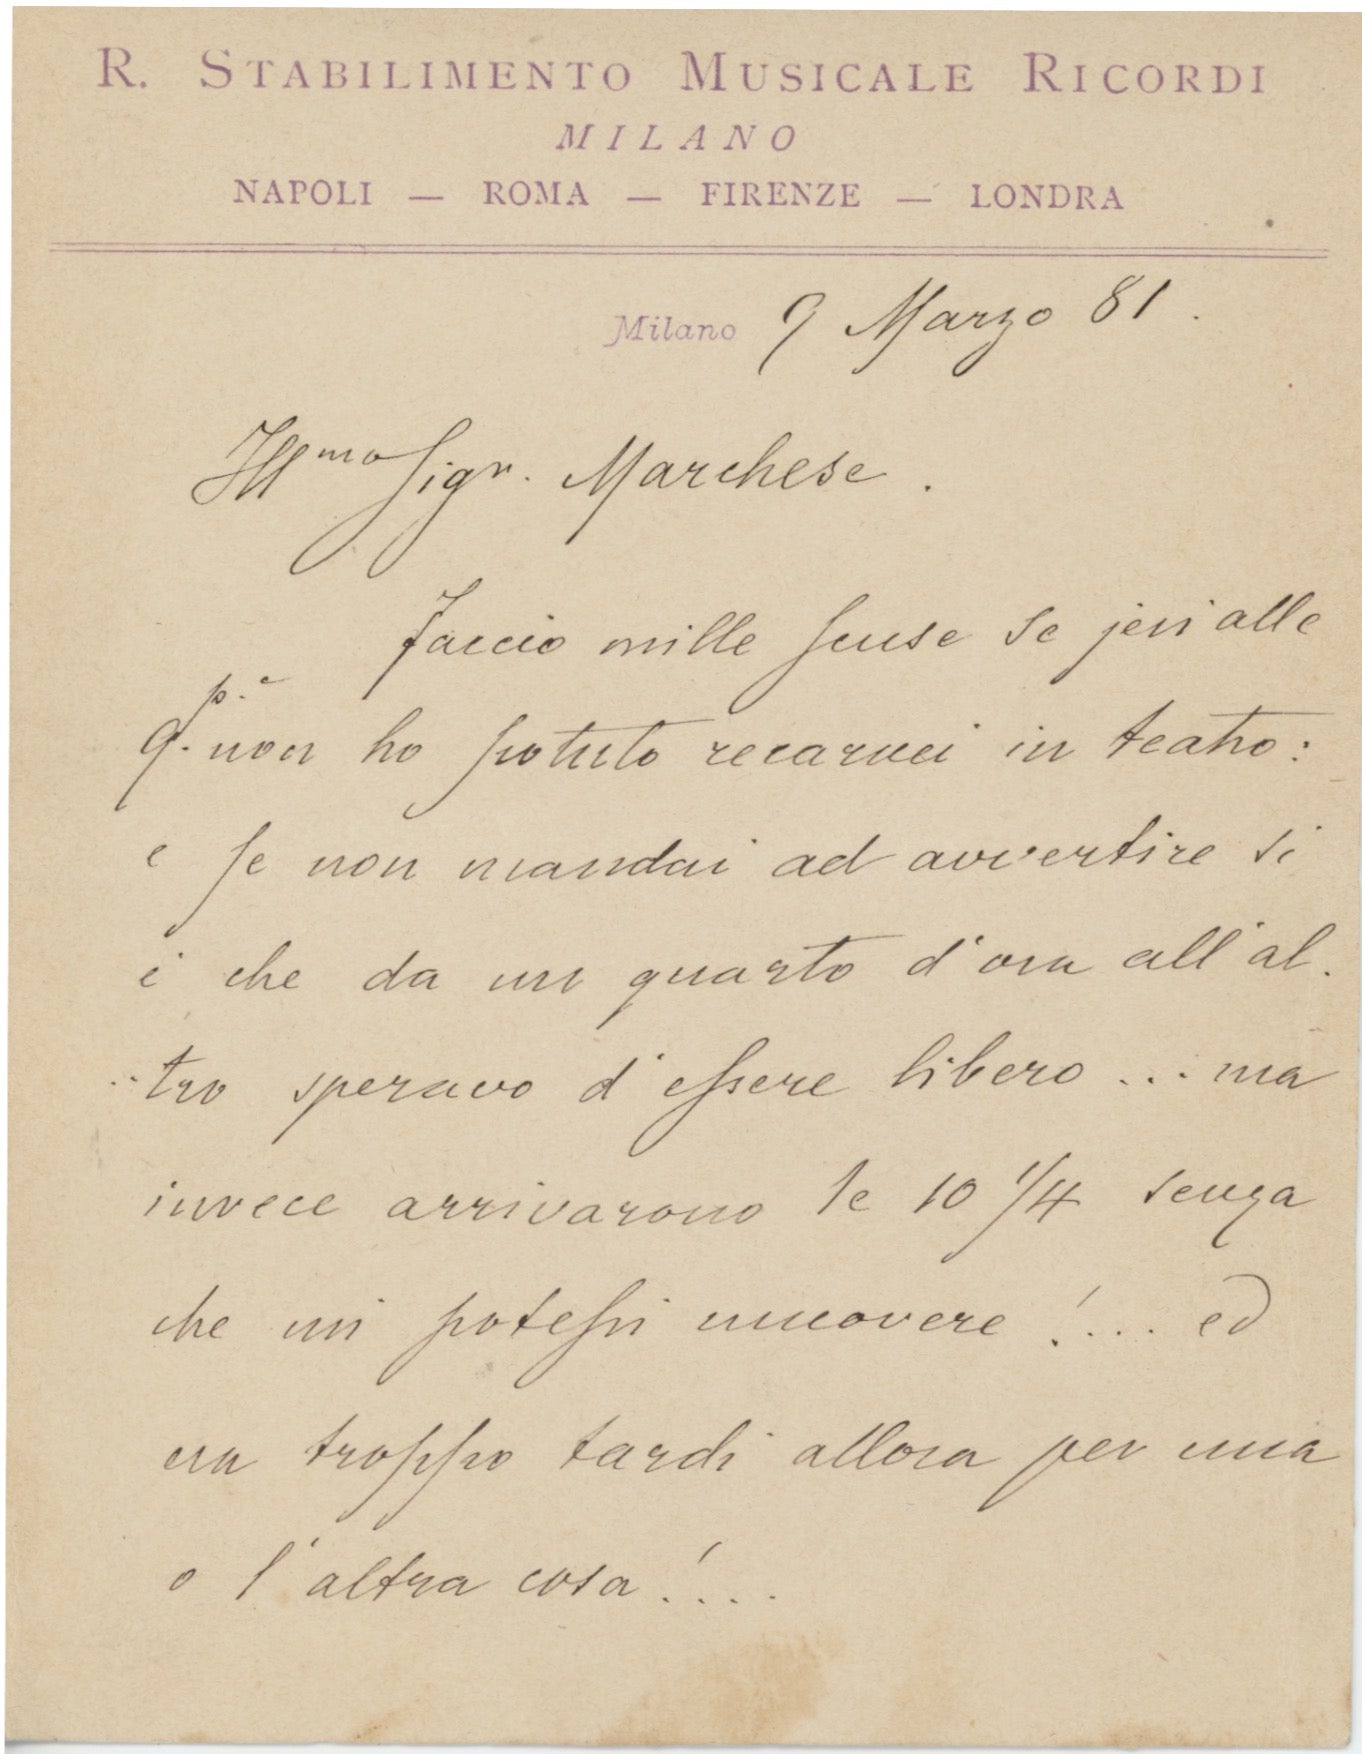 R. STABILIMENTO MUSICALE RICORDI
MILANO
NAPOLI — ROMA — FIRENZE — LONDRA
Milano 9 Marzo 81.
Illmo Sigr. Marchese.
Faccio mille scuse se jeri alle
9. p.e non ho potuto recarmi in teatro:
e se non mandai ad avvertire si
è che da un quarto d'ora all'al-
tro speravo d'essere libero ... ma
invece arrivarono le 10 1/4 senza
che mi potessi muovere!... ed
era troppo tardi allora per una
o l'altra cosa!...